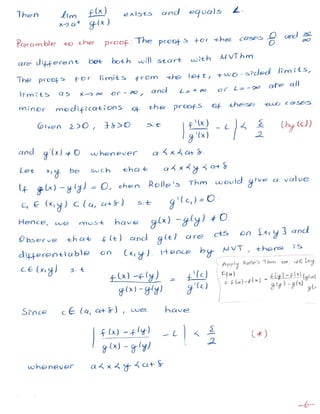 Then lim x→a⁺ f(x)/g(x) exists and equals L.
Preamble to the proof The proofs for the cases 0/0 and ∞/∞
are different but both will start with MVThm
The proofs for limits from the left, two-sided limits,
limits as x→∞ or -∞, and L=+∞ or L=-∞ are all
minor modifications of the proofs of these two cases
Given ε>0, ∃δ>0 s.t | f'(x)/g'(x) - L | < ε/2 (by (c))
and g'(x)≠0 whenever a<x<a+δ
Let x,y be such that a<x<y<a+δ
If g(x)-g(y) = 0, then Rolle's Thm would give a value
c₁ ∈ (x,y) ⊂ (a, a+δ) s.t g'(c₁)=0.
Hence, we must have g(x)-g(y) ≠ 0.
Observe that f(t) and g(t) are cts on [x,y] and
differentiable on (x,y). Hence by MVT, there is
c∈(x,y) s.t
Apply Rolle's Thm
f(x)-f(y) / g(x)-g(y) = f'(c)/g'(c)
Since c∈(a, a+δ), we have
| f(x)-f(y) / g(x)-g(y) - L | < ε/2 (*)
whenever a<x<y<a+δ
-6-